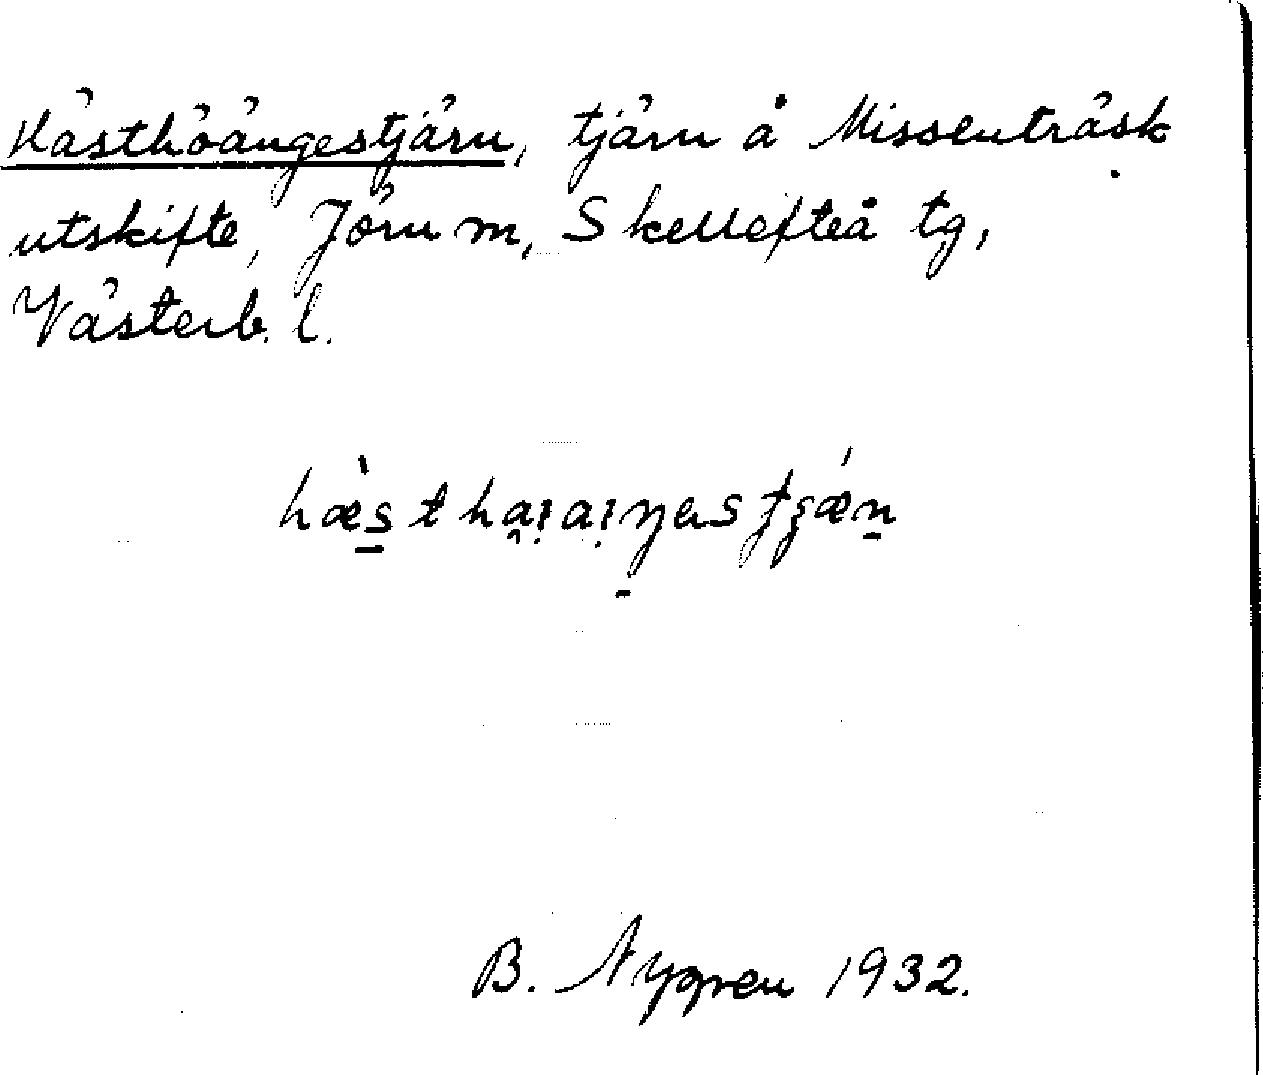 Hästhöängestjärn, tjärn å Missenträsk
utskifte, Jörn m, Skellefteå tg,
Västerb. l.
B. Nygren 1932.